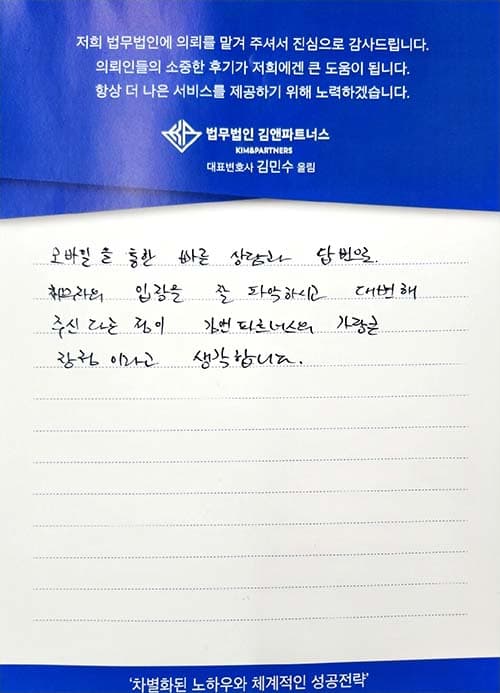 저희 법무법인에 의뢰를 맡겨 주셔서 진심으로 감사드립니다.
의뢰인들의 소중한 후기가 저희에겐 큰 도움이 됩니다.
항상 더 나은 서비스를 제공하기 위해 노력하겠습니다.
법무법인 김앤파트너스
KIM&PARTNERS
대표변호사 김민수 올림
모바일을 통한 빠른 상담과 답변으로
입장을 잘 파악하시고 대변해
주신 다는 점이 김앤파트너스의 가장큰
장점 이라고 생각합니다.
'차별화된 노하우와 체계적인 성공전략'